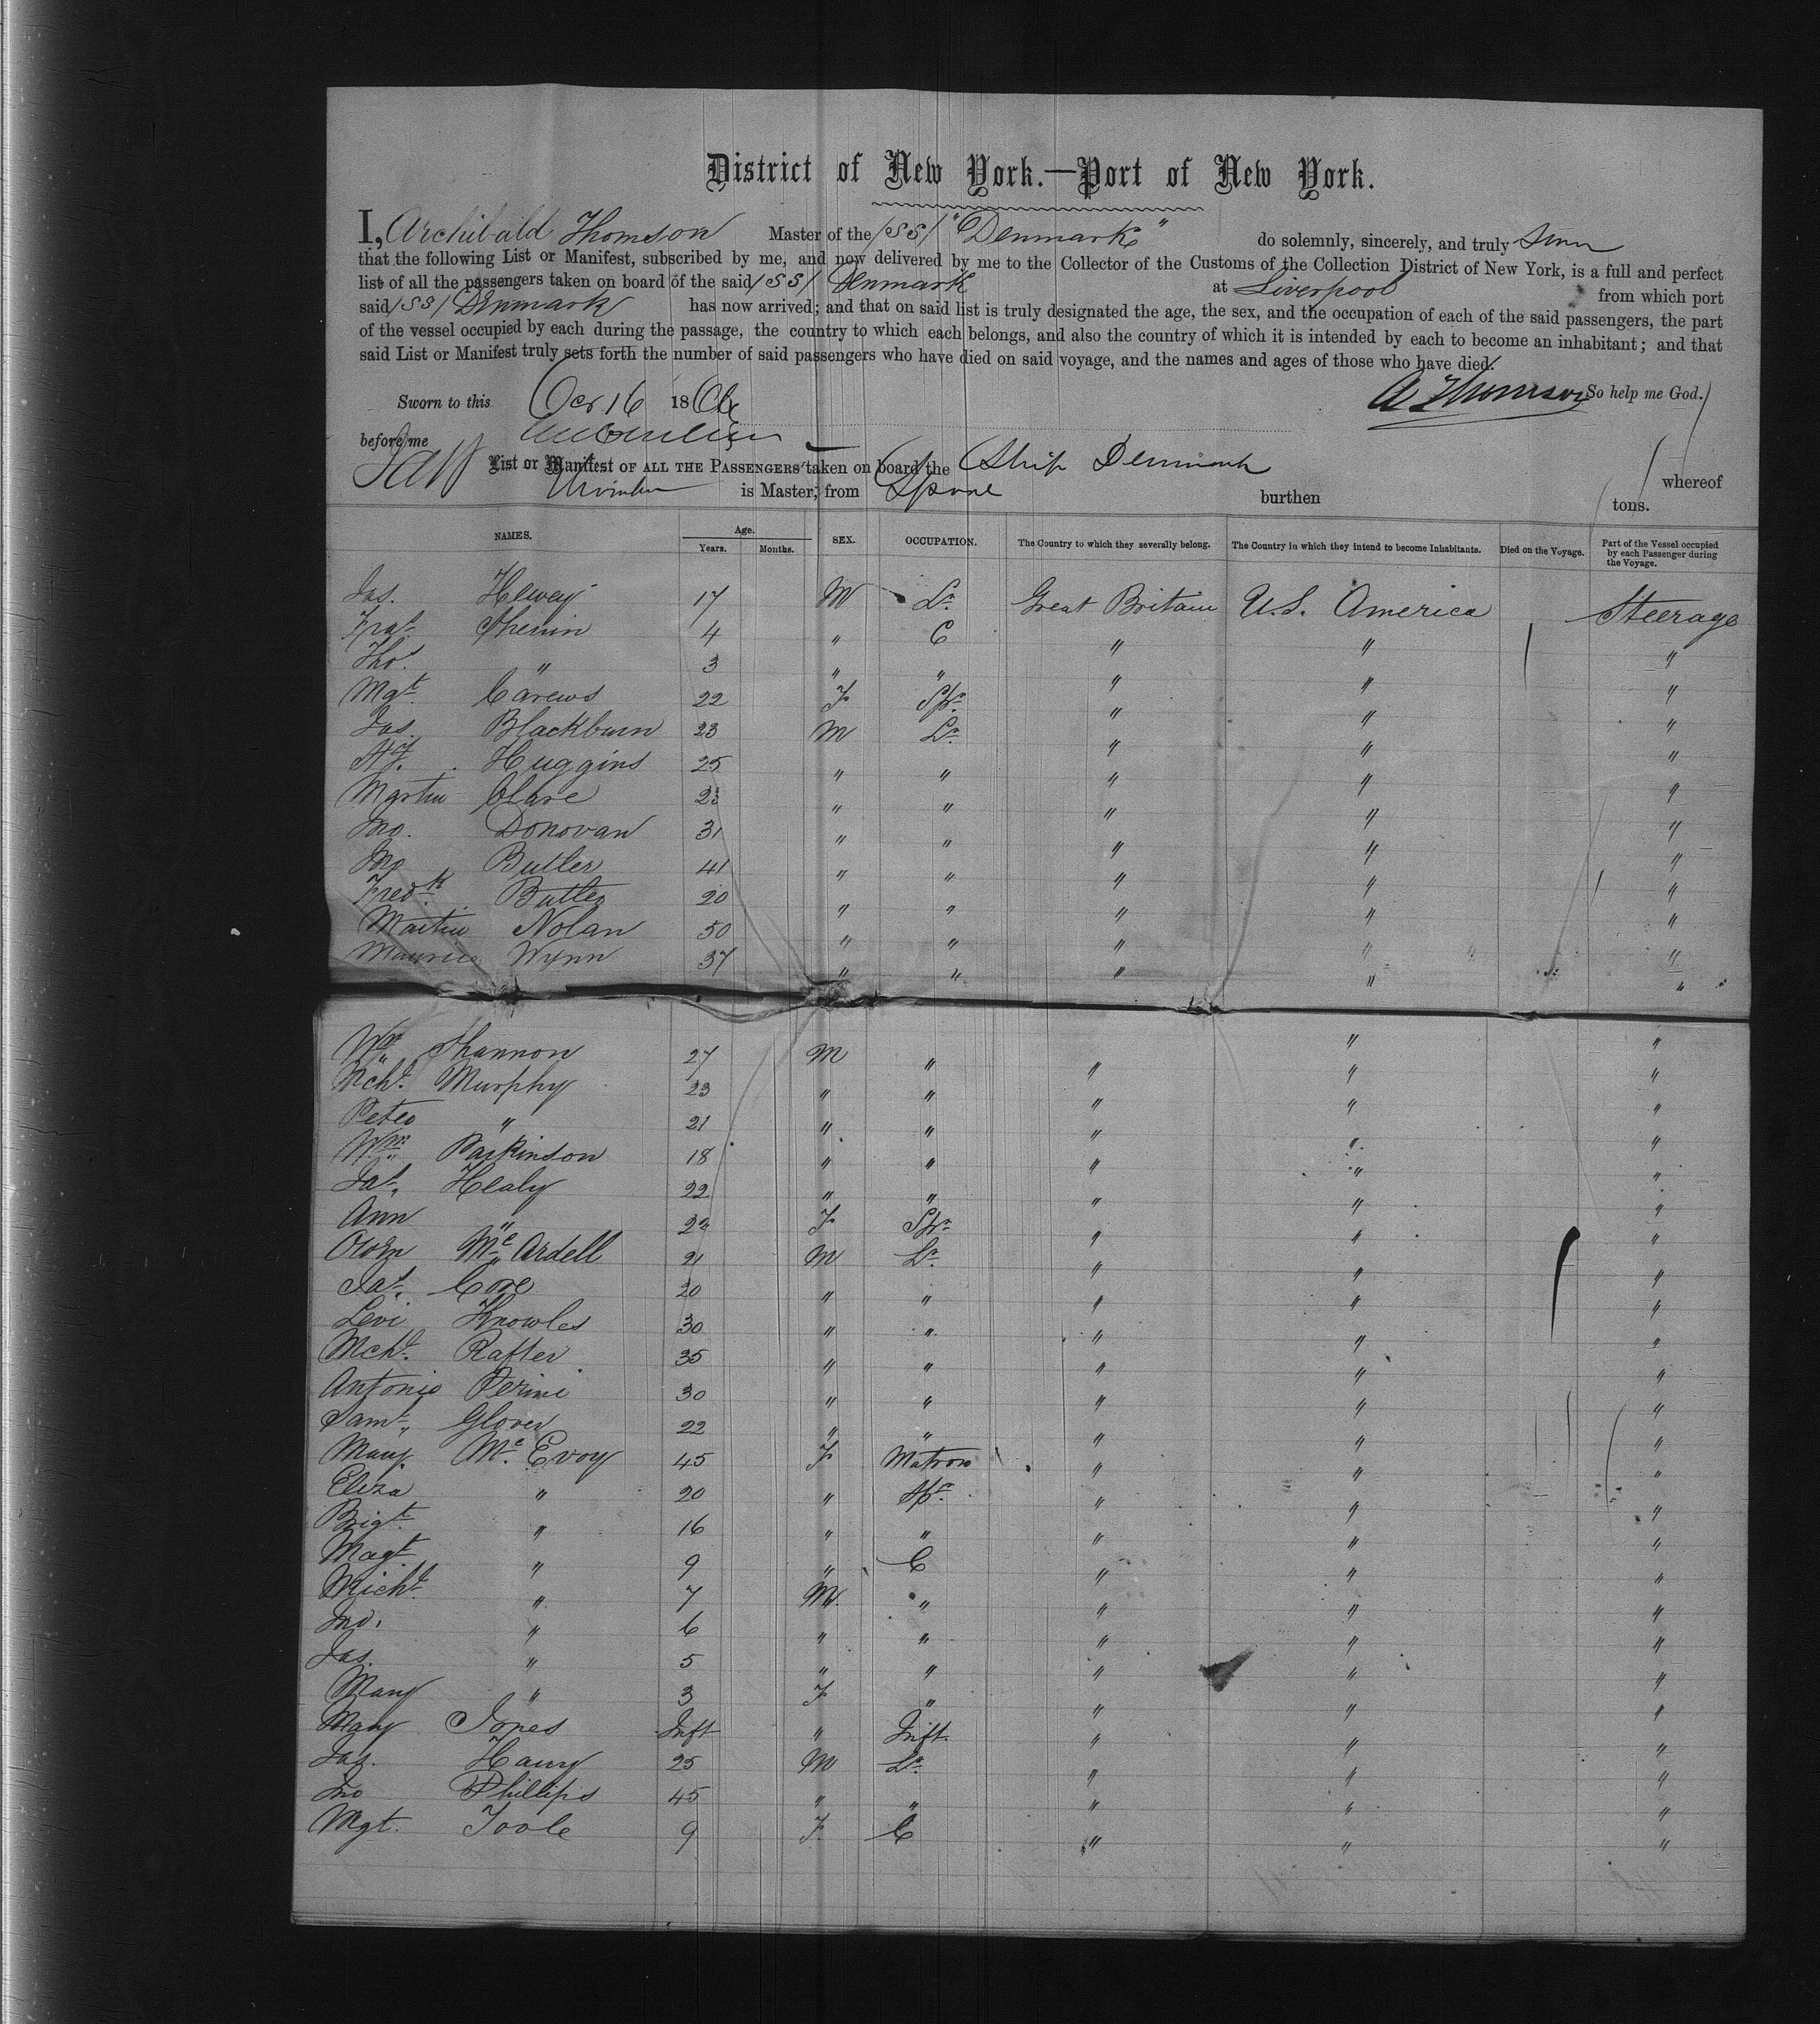 District of New York.—Port of New York.
I, Archibald Thomson Master of the /SS/ "Denmark" do solemnly, sincerely, and truly
that the following List or Manifest, subscribed by me, and now delivered by me to the Collector of the Customs of the Collection District of New York, is a full and perfect
list of all the passengers taken on board of the said /SS/ Denmark at Liverpool from which port
said /SS/ Denmark has now arrived; and that on said list is truly designated the age, the sex, and the occupation of each of the said passengers, the part
of the vessel occupied by each during the passage, the country to which each belongs, and also the country of which it is intended by each to become an inhabitant; and that
said List or Manifest truly sets forth the number of said passengers who have died on said voyage, and the names and ages of those who have died.
Sworn to this Oct 16 1866 A Thomson So help me God.
before me
List or Manifest OF ALL THE PASSENGERS taken on board the Ship Denmark whereof
is Master, from burthen tons.
NAMES. Age. Years. Months. SEX. OCCUPATION. The Country to which they severally belong. The Country in which they intend to become Inhabitants. Died on the Voyage. Part of the Vessel occupied by each Passenger during the Voyage.
Jas. 17 M Lr. Great Britain U.S. America Steerage
4 " C " " "
Thos. " 3 " " " " "
Mgt. Carews 22 F Spr. " " "
Jas. Blackburn 23 M Lr. " " "
Huggins 25 " " " " "
Martin Clare 23 " " " " "
Jno. Donovan 31 " " " " "
Jno Butler 41 " " " " "
Fredk. Butler 20 " " " " "
Martin Nolan 50 " " " " "
Maurice Wynn 37 " " " " "
Wm. Shannon 27 M " " " "
Murphy 23 " " " " "
Peter " 21 " " " " "
Wm. Parkinson 18 " " " " "
Jas. Healy 22 " " " " "
Ann " 22 F Spr. " " "
Owen Mc Ardell 21 M Lr. " " "
Jas. 20 " " " " "
Levi Knowles 30 " " " " "
Rafter 35 " " " " "
Antonio Perini 30 " " " " "
Saml. Glover 22 " " " " "
Mary Mc Evoy 45 F Matron " " "
Eliza " 20 " Spr. " " "
Brigt. " 16 " " " " "
Magt. " 9 " C " " "
Michl. " 7 M. " " " "
Jno. " 6 " " " " "
Jas. " 5 " " " " "
Mary " 3 F " " " "
Mary Jones Inft " Inft. " " "
Jas. 25 M Lr. " " "
Jno Phillips 45 " " " " "
Mgt. Toole 9 F. C " " "